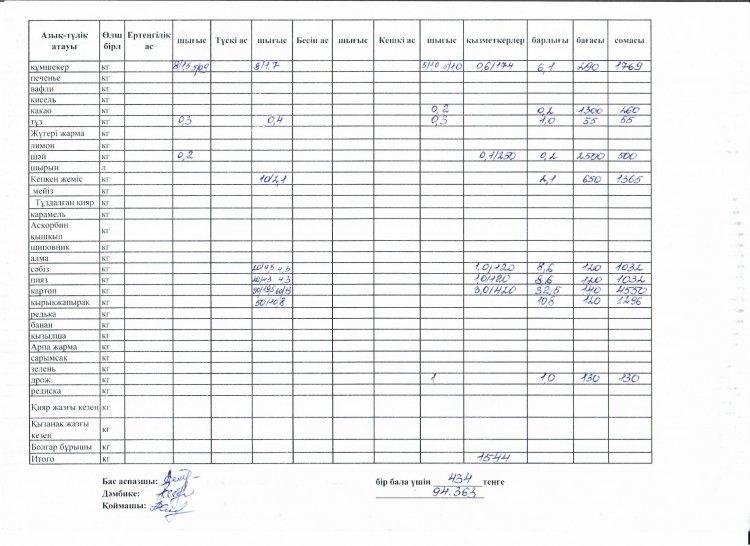 Азық-түлік атауы Өлш бірл Ертеңгілік ас шығыс Түскі ас шығыс Бесін ас шығыс Кешкі ас шығыс қызметкерлер барлығы бағасы сомасы
құмшекер кг 8/1,7 0,6/174 6,1 290 1769
печенье кг
вафли кг
кисель кг
какао кг 0,2 0,2 1300 260
тұз кг 0,3 0,4 0,3 1,0 55 55
Жүгері жарма кг
лимон кг
шәй кг 0,2 0,1/250 0,2 2500 500
шырын л
Кепкен жеміс кг 10/2,1 2,1 650 1365
мейіз кг
Тұздалған қияр кг
карамель кг
Аскорбин қышқыл кг
шиповник кг
алма кг
сәбіз кг 1,0/120 8,6 120 1032
пияз кг 1,0/120 8,6 120 1032
картоп кг 3,0/420 32,5 140 4550
қырыкжапырақ кг 50/10,8 10,8 120 1296
редька кг
банан кг
қызылша кг
Арпа жарма кг
сарымсақ кг
зелень кг
дрож кг 1 1,0 130 130
редиска кг
Қияр жазғы кезең кг
Қызанақ жазғы кезең кг
Болгар бұрышы кг
Итого кг 1544
Бас аспазшы:
бір бала үшін 434 теңге
Дәмбике:
94.363
Қоймашы: